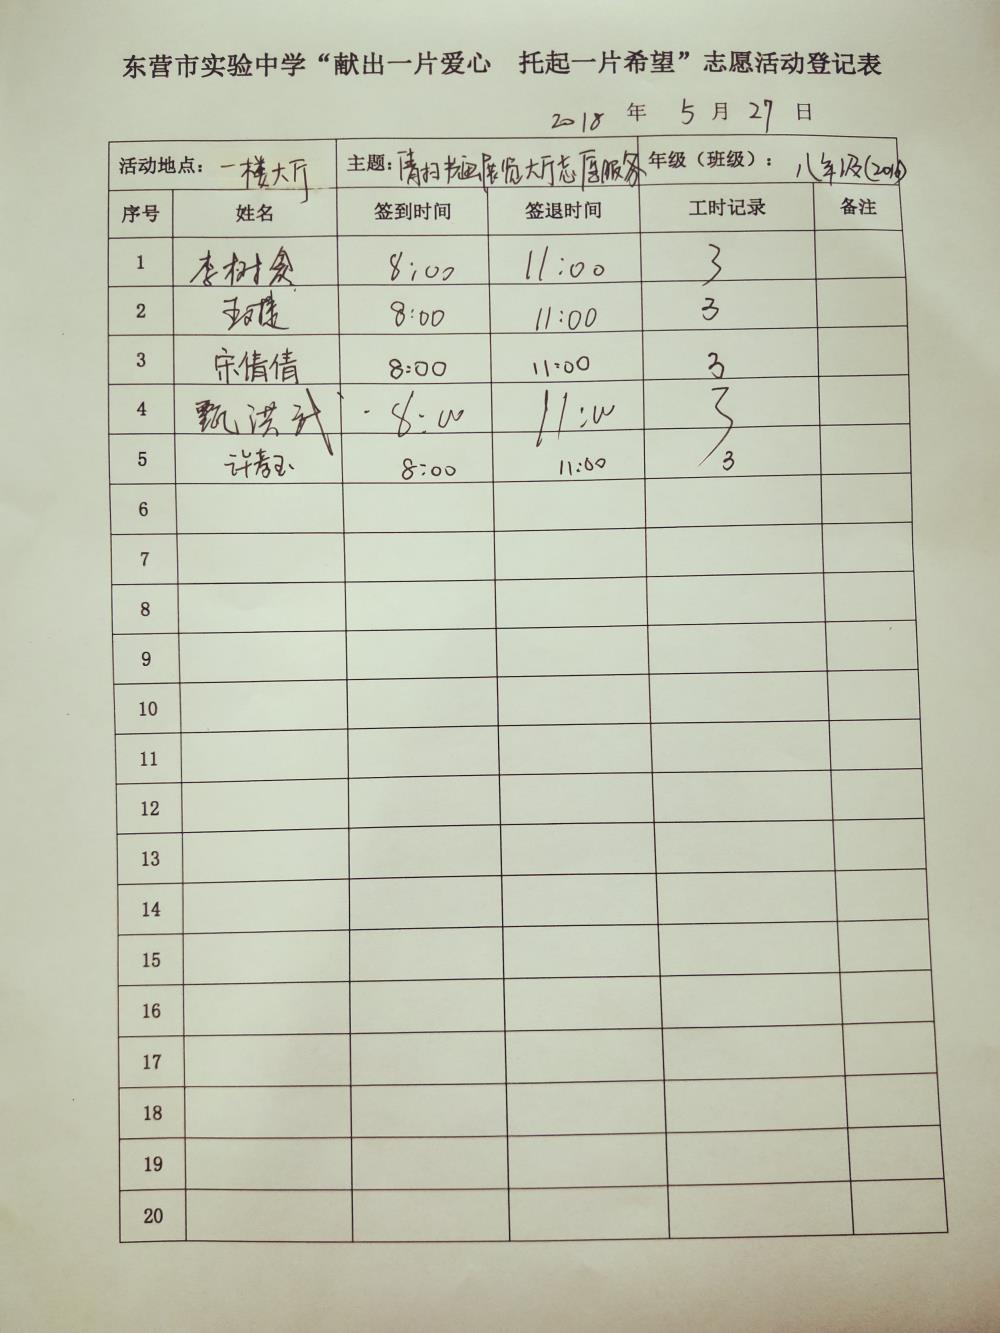 东营市实验中学“献出一片爱心 托起一片希望”志愿活动登记表
2018 年 5 月 27 日
活动地点：一楼大厅 主题：清扫书画展览大厅志愿服务 年级（班级）：八年级(2016)
序号 姓名 签到时间 签退时间 工时记录 备注
1 李树 8:00 11:00 3
2 8:00 11:00 3
3 宋倩倩 8:00 11:00 3
4 甄洪武 8:00 11:00 3
5 许孝玉 8:00 11:00 3
6
7
8
9
10
11
12
13
14
15
16
17
18
19
20